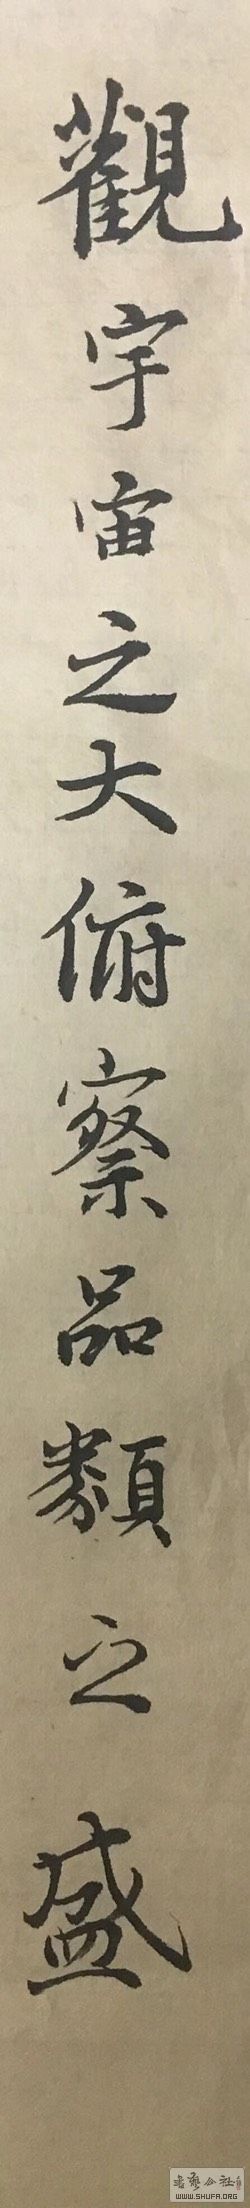 觀宇宙之大俯察品類之盛
書艺公社
WWW.SHUFA.ORG